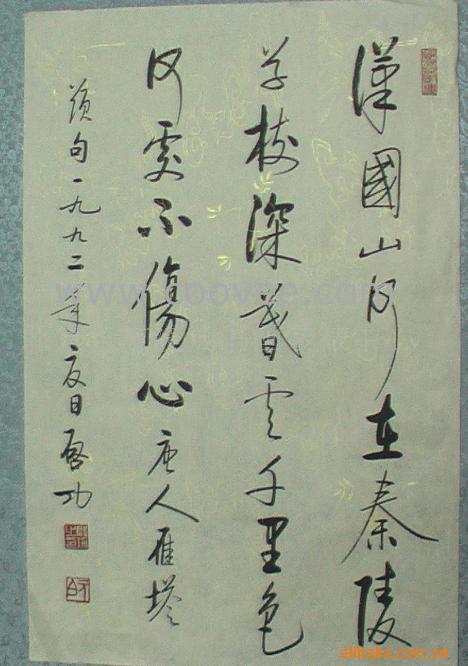 漢國山河在秦陵
草树深暮雲千里色
何處不傷心唐人雁塔
題句一九九二年夏日啓功
www.coovee.com
alibaba.com.cn